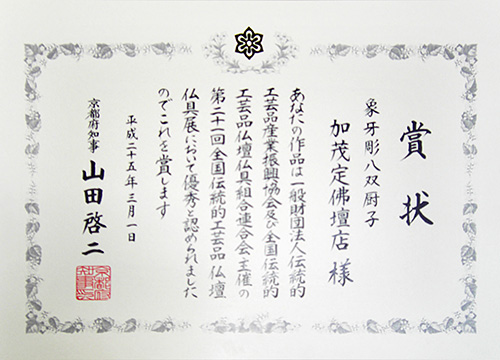 賞状
象牙彫八双厨子
加茂定佛壇店 様
あなたの作品は一般財団法人伝統的
工芸品産業振興協会及び全国伝統的
工芸品仏壇仏具組合連合会主催の
第二十一回全国伝統的工芸品 仏壇
仏具展において優秀と認められました
のでこれを賞します
平成二十五年三月一日
京都府知事 山田啓二
京都府
知事之印